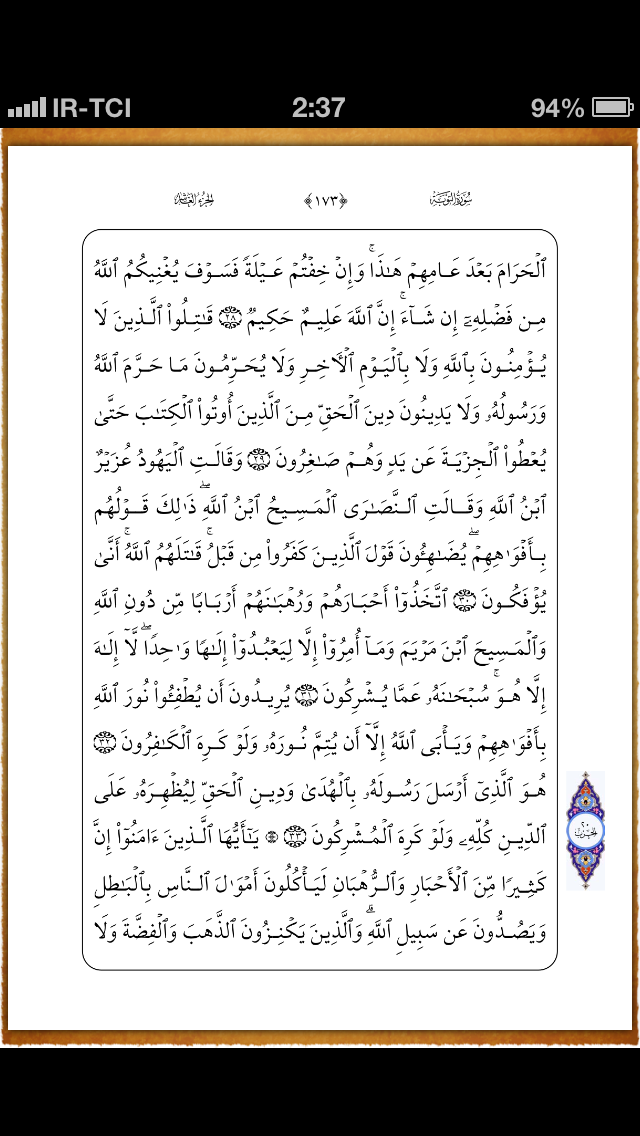 IR-TCI 2:37 94%
سُورَةُ التَّوْبَة ﴿١٧٣﴾ الجُزءُ العَاشِر
ٱلْحَرَامَ بَعْدَ عَامِهِمْ هَـٰذَا ۚ وَإِنْ خِفْتُمْ عَيْلَةً فَسَوْفَ يُغْنِيكُمُ ٱللَّهُ
مِن فَضْلِهِۦٓ إِن شَآءَ ۚ إِنَّ ٱللَّهَ عَلِيمٌ حَكِيمٌ ﴿٢٨﴾ قَـٰتِلُوا۟ ٱلَّذِينَ لَا
يُؤْمِنُونَ بِٱللَّهِ وَلَا بِٱلْيَوْمِ ٱلْـَٔاخِرِ وَلَا يُحَرِّمُونَ مَا حَرَّمَ ٱللَّهُ
وَرَسُولُهُۥ وَلَا يَدِينُونَ دِينَ ٱلْحَقِّ مِنَ ٱلَّذِينَ أُوتُوا۟ ٱلْكِتَـٰبَ حَتَّىٰ
يُعْطُوا۟ ٱلْجِزْيَةَ عَن يَدٍ وَهُمْ صَـٰغِرُونَ ﴿٢٩﴾ وَقَالَتِ ٱلْيَهُودُ عُزَيْرٌ
ٱبْنُ ٱللَّهِ وَقَالَتِ ٱلنَّصَـٰرَى ٱلْمَسِيحُ ٱبْنُ ٱللَّهِ ۖ ذَٰلِكَ قَوْلُهُم
بِأَفْوَٰهِهِمْ ۖ يُضَـٰهِـُٔونَ قَوْلَ ٱلَّذِينَ كَفَرُوا۟ مِن قَبْلُ ۚ قَـٰتَلَهُمُ ٱللَّهُ ۚ أَنَّىٰ
يُؤْفَكُونَ ﴿٣٠﴾ ٱتَّخَذُوٓا۟ أَحْبَارَهُمْ وَرُهْبَـٰنَهُمْ أَرْبَابًا مِّن دُونِ ٱللَّهِ
وَٱلْمَسِيحَ ٱبْنَ مَرْيَمَ وَمَآ أُمِرُوٓا۟ إِلَّا لِيَعْبُدُوٓا۟ إِلَـٰهًا وَٰحِدًا ۖ لَّآ إِلَـٰهَ
إِلَّا هُوَ ۚ سُبْحَـٰنَهُۥ عَمَّا يُشْرِكُونَ ﴿٣١﴾ يُرِيدُونَ أَن يُطْفِـُٔوا۟ نُورَ ٱللَّهِ
بِأَفْوَٰهِهِمْ وَيَأْبَى ٱللَّهُ إِلَّآ أَن يُتِمَّ نُورَهُۥ وَلَوْ كَرِهَ ٱلْكَـٰفِرُونَ ﴿٣٢﴾
هُوَ ٱلَّذِىٓ أَرْسَلَ رَسُولَهُۥ بِٱلْهُدَىٰ وَدِينِ ٱلْحَقِّ لِيُظْهِرَهُۥ عَلَى
ٱلدِّينِ كُلِّهِۦ وَلَوْ كَرِهَ ٱلْمُشْرِكُونَ ﴿٣٣﴾ ۞ يَـٰٓأَيُّهَا ٱلَّذِينَ ءَامَنُوٓا۟ إِنَّ
كَثِيرًا مِّنَ ٱلْأَحْبَارِ وَٱلرُّهْبَانِ لَيَأْكُلُونَ أَمْوَٰلَ ٱلنَّاسِ بِٱلْبَـٰطِلِ
وَيَصُدُّونَ عَن سَبِيلِ ٱللَّهِ ۗ وَٱلَّذِينَ يَكْنِزُونَ ٱلذَّهَبَ وَٱلْفِضَّةَ وَلَا
٢٠
الحزب